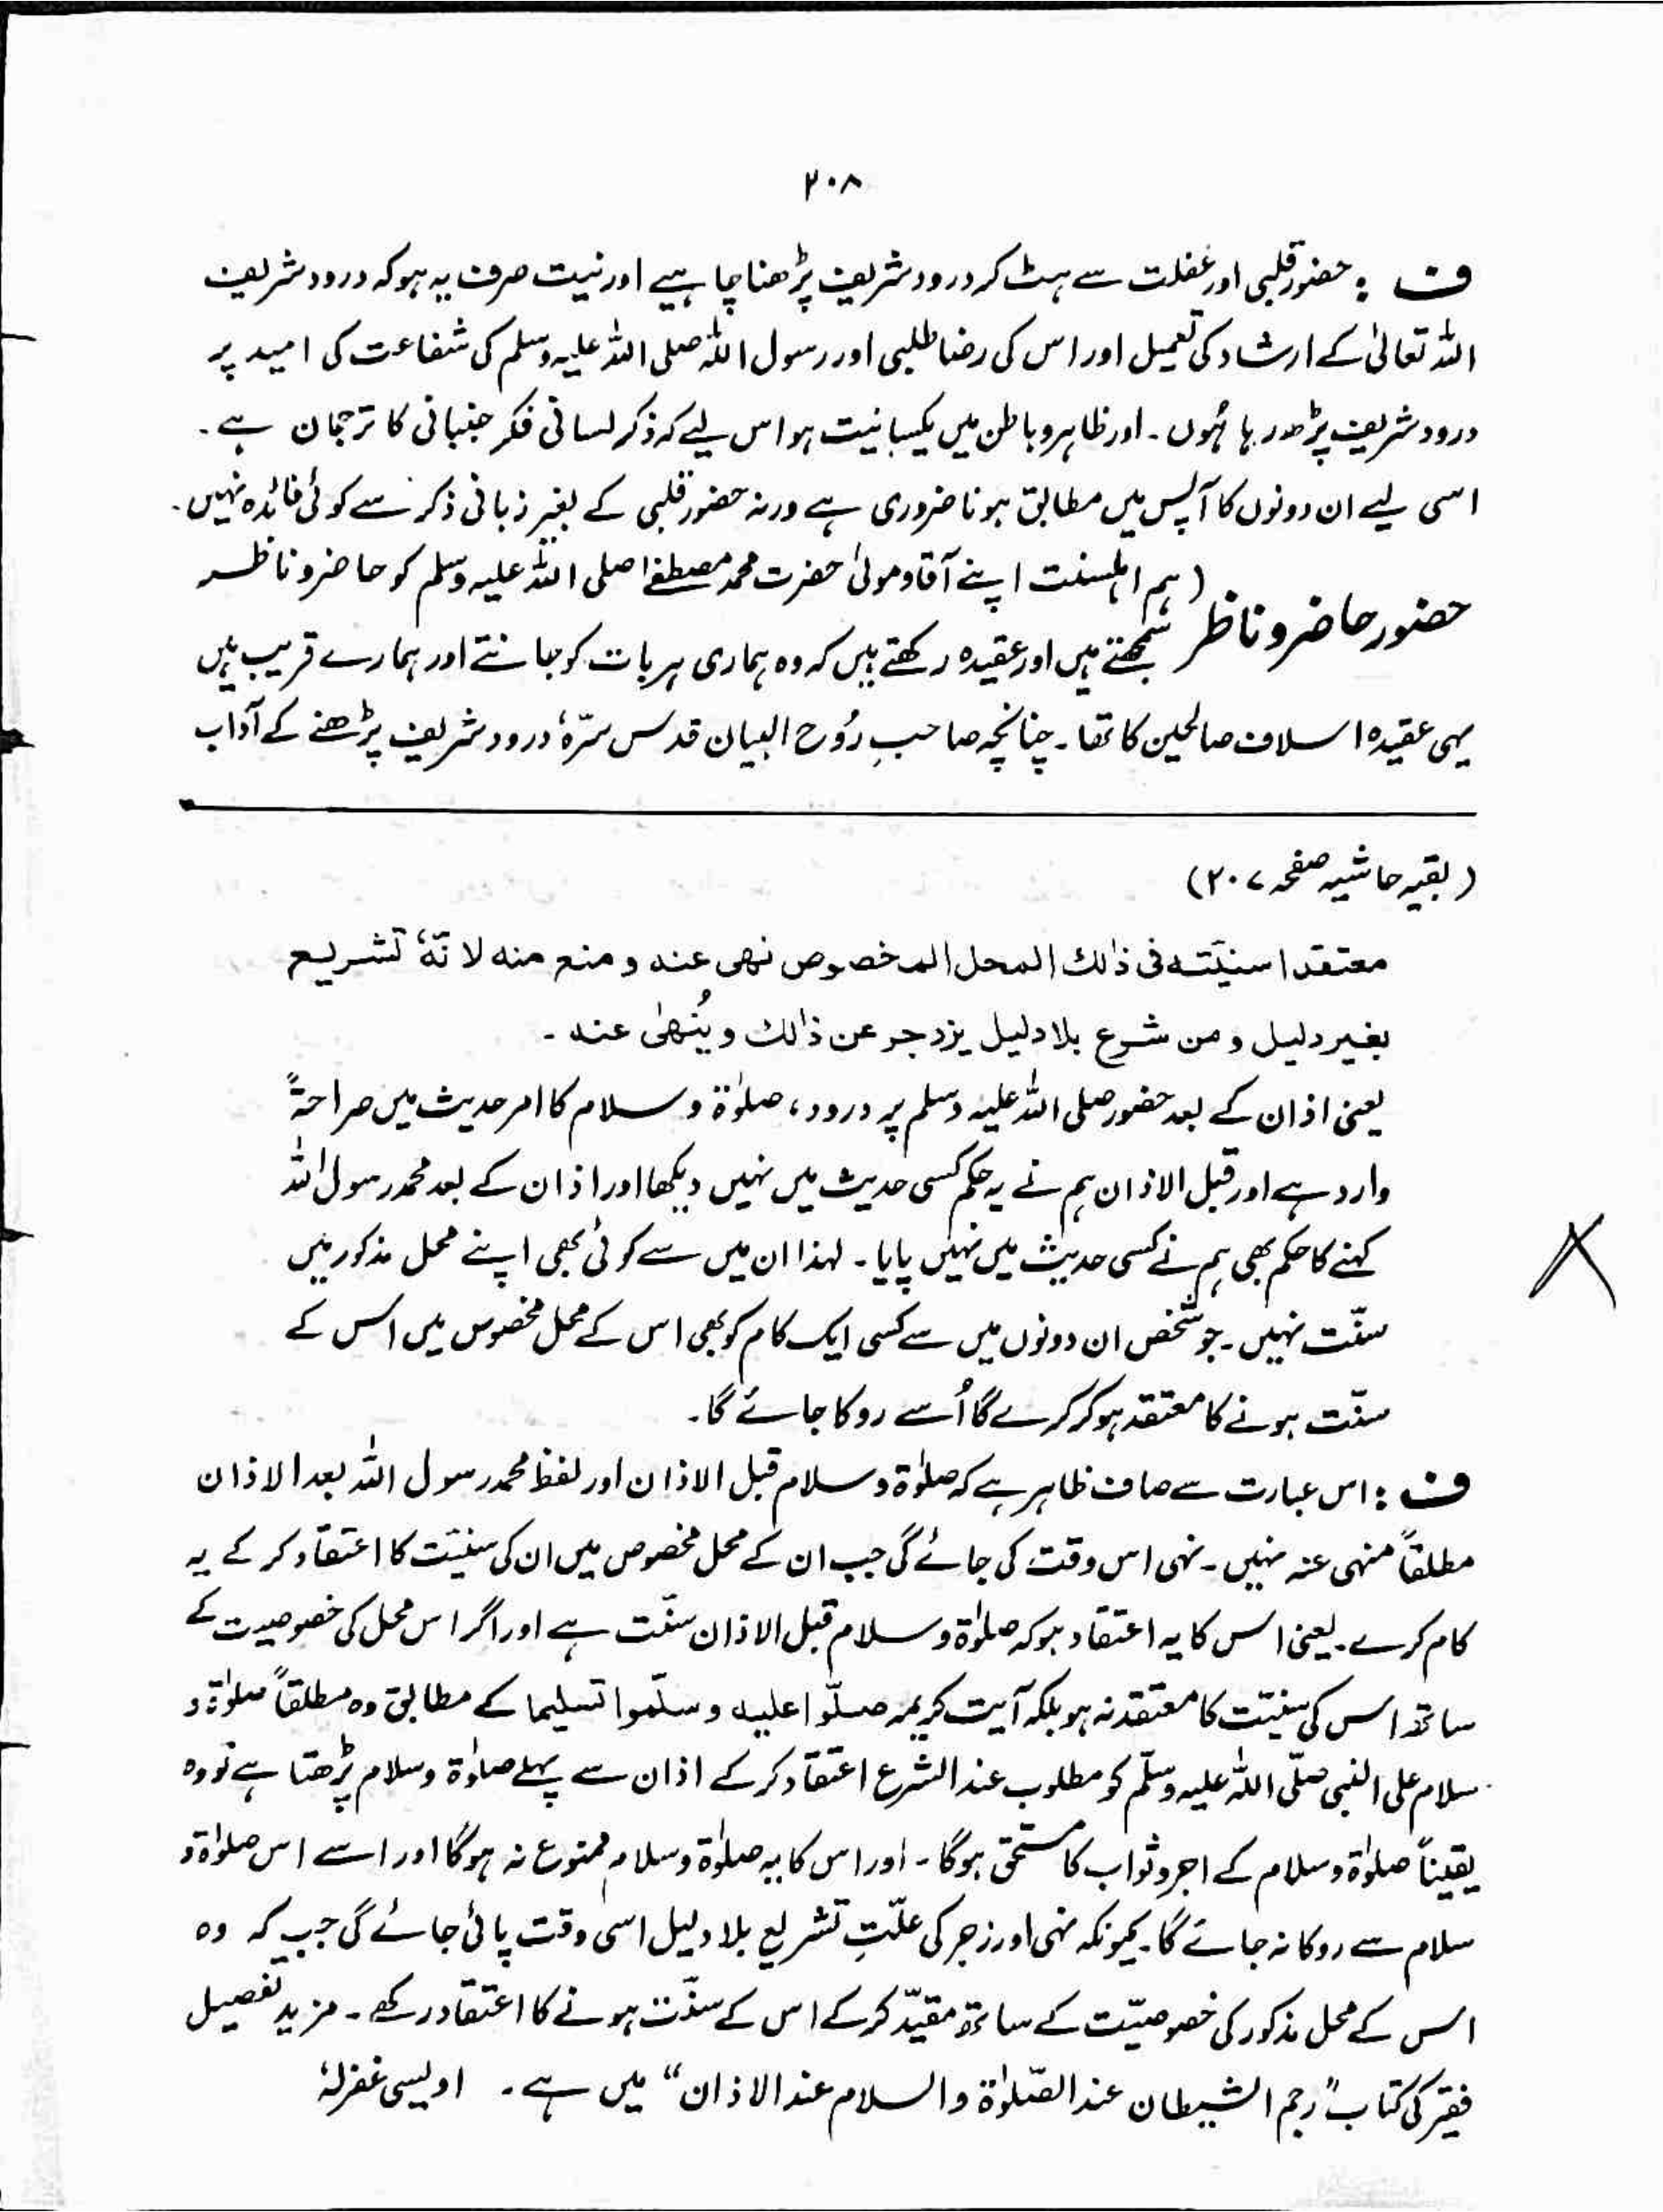 ۲۰۸
ف : حضور قلبی اور غفلت سے ہٹ کر درود شریف پڑھنا چاہیے اور نیت صرف یہ ہو کہ درود شریف
اللہ تعالیٰ کے ارشاد کی تعمیل اور اس کی رضا طلبی اور رسول اللہ صلی اللہ علیہ وسلم کی شفاعت کی امید پر
درود شریف پڑھ رہا ہُوں ۔ اور ظاہر و باطن میں یکسانیت ہو اس لیے کہ ذکر لسانی فکر جنبانی کا ترجمان ہے ۔
اسی لیے ان دونوں کا آپس میں مطابق ہونا ضروری ہے ورنہ حضور قلبی کے بغیر زبانی ذکر سے کوئی فائدہ نہیں ۔
حضور حاضر و ناظر
(ہم اہلسنت اپنے آقا و مولیٰ حضرت محمد مصطفےٰ صلی اللہ علیہ وسلم کو حاضر و ناظر
سمجھتے ہیں اور عقیدہ رکھتے ہیں کہ وہ ہماری ہر بات کو جانتے اور ہمارے قریب ہیں
یہی عقیدہ اسلاف صالحین کا تھا ۔ چنانچہ صاحبِ رُوح البیان قدس سرّہٗ درود شریف پڑھنے کے آداب
(بقیہ حاشیہ صفحہ ۲۰۷)
معتقدا سنیّتہ فی ذالك المحل المخصوص نھی عنه و منع منه لانّهٗ تشریع
بغیر دلیل و من شرع بلا دلیل یزدجر عن ذالك و یُنْھٰی عنه ۔
یعنی اذان کے بعد حضور صلی اللہ علیہ وسلم پر درود ، صلوٰۃ و سلام کا امر حدیث میں صراحۃً
وارد ہے اور قبل الاذان ہم نے یہ حکم کسی حدیث میں نہیں دیکھا اور اذان کے بعد محمد رسول اللہ
کہنے کا حکم بھی ہم نے کسی حدیث میں نہیں پایا ۔ لہذا ان میں سے کوئی بھی اپنے محل مذکور میں
سنّت نہیں ۔ جو شخص ان دونوں میں سے کسی ایک کام کو بھی اس کے محل مخصوص میں اس کے
سنّت ہونے کا معتقد ہو کر کرے گا اُسے روکا جائے گا ۔
ف : اس عبارت سے صاف ظاہر ہے کہ صلوٰۃ و سلام قبل الاذان اور لفظ محمد رسول اللہ بعد الاذان
مطلقاً منہی عنہ نہیں ۔ نہی اس وقت کی جائے گی جب ان کے محل مخصوص میں ان کی سنیّت کا اعتقاد کر کے یہ
کام کرے ۔ یعنی اس کا یہ اعتقاد ہو کہ صلوٰۃ و سلام قبل الاذان سنّت ہے اور اگر اس محل کی خصوصیت کے
ساتھ اس کی سنیّت کا معتقد نہ ہو بلکہ آیت کریمہ صلّوا علیه و سلّموا تسلیما کے مطابق وہ مطلقاً صلوٰۃ و
سلام علی النبی صلّی اللہ علیہ وسلّم کو مطلوب عند الشرع اعتقاد کر کے اذان سے پہلے صلوٰۃ و سلام پڑھتا ہے تو وہ
یقیناً صلوٰۃ و سلام کے اجر و ثواب کا مستحق ہوگا ۔ اور اس کا یہ صلوٰۃ و سلام ممنوع نہ ہوگا اور اسے اس صلوٰۃ و
سلام سے روکا نہ جائے گا ۔ کیونکہ نہی اور زجر کی علّتِ تشریع بلا دلیل اسی وقت پائی جائے گی جب کہ وہ
اس کے محل مذکور کی خصوصیّت کے ساتھ مقیّد کر کے اس کے سنّت ہونے کا اعتقاد رکھے ۔ مزید تفصیل
فقیر کی کتاب "رجم الشیطان عند الصّلوٰۃ والسلام عند الاذان" میں ہے ۔ اویسی غفرلہٗ